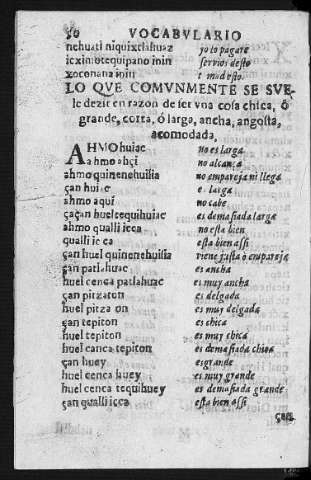 50 VOCABVLARIO
nehuatl niquixtlahuaz yo lo pagare
icxinotequipano inin servios desto
xoconana inin tomad esto.
LO QVE COMVNMENTE SE SVE-
le dezir en razon de ser vna cosa chica, ò
grande, corta, ó larga, ancha, angosta,
acomodada,
AHMO huiac no es larga
ahmo ahçi no alcança
ahmo quinenehuilia no emparejani llega
çan huiac es larga
ahmo aqui no cabe
çaçan huelcequihuiac es demasiada larga
ahmo qualli icca no esta bien
qualli icca esta bien assi
çan huel quinenehuilia viene justa ó empareja
çan patlahuac es ancha
huel cenca patlahuac es muy ancha
çan pitzaton es delgada
huel pitzaton es muy delgada
çan tepiton es chica
huel tepiton es muy chica
huel cenca tepiton es demasiada chica
çan huey es grande
huel cenca huey es muy grande
huel cenca tequihuey es demasiada grande
çan qualli icca esta bien assi
çan